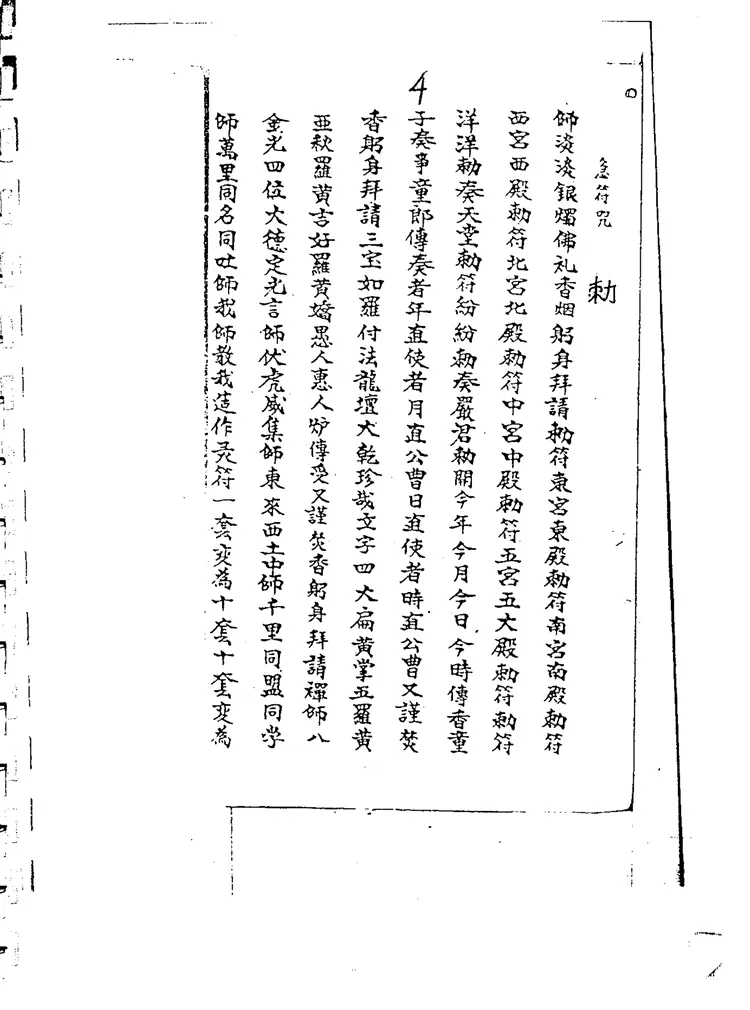 急符咒
勅
師淡淡銀燭佛礼香烟躬身拜請勅符東宮東殿勅符南宮南殿勅符
西宮西殿勅符北宮北殿勅符中宮中殿勅符五宮五大殿勅符勅符
洋洋勅奏天堂勅符紛紛勅奏嚴君勅開今年今月今日今時傳香童
4
子奏事童郎傳奏者年直使者月直公曹日直使者時直公曹又謹焚
香躬身拜請三宝如羅付法龍壇大乾珍哉文字四大扁黄掌五羅黄
亜秋羅黄吉好羅黄嬌愚人惠人炉傳受又謹焚香躬身拜請禪師八
金光四位大德定光言師伏虎威集師東來西土中師千里同盟同学
師萬里同名同吐師我師教我造作灵符一套变為十套十套变為